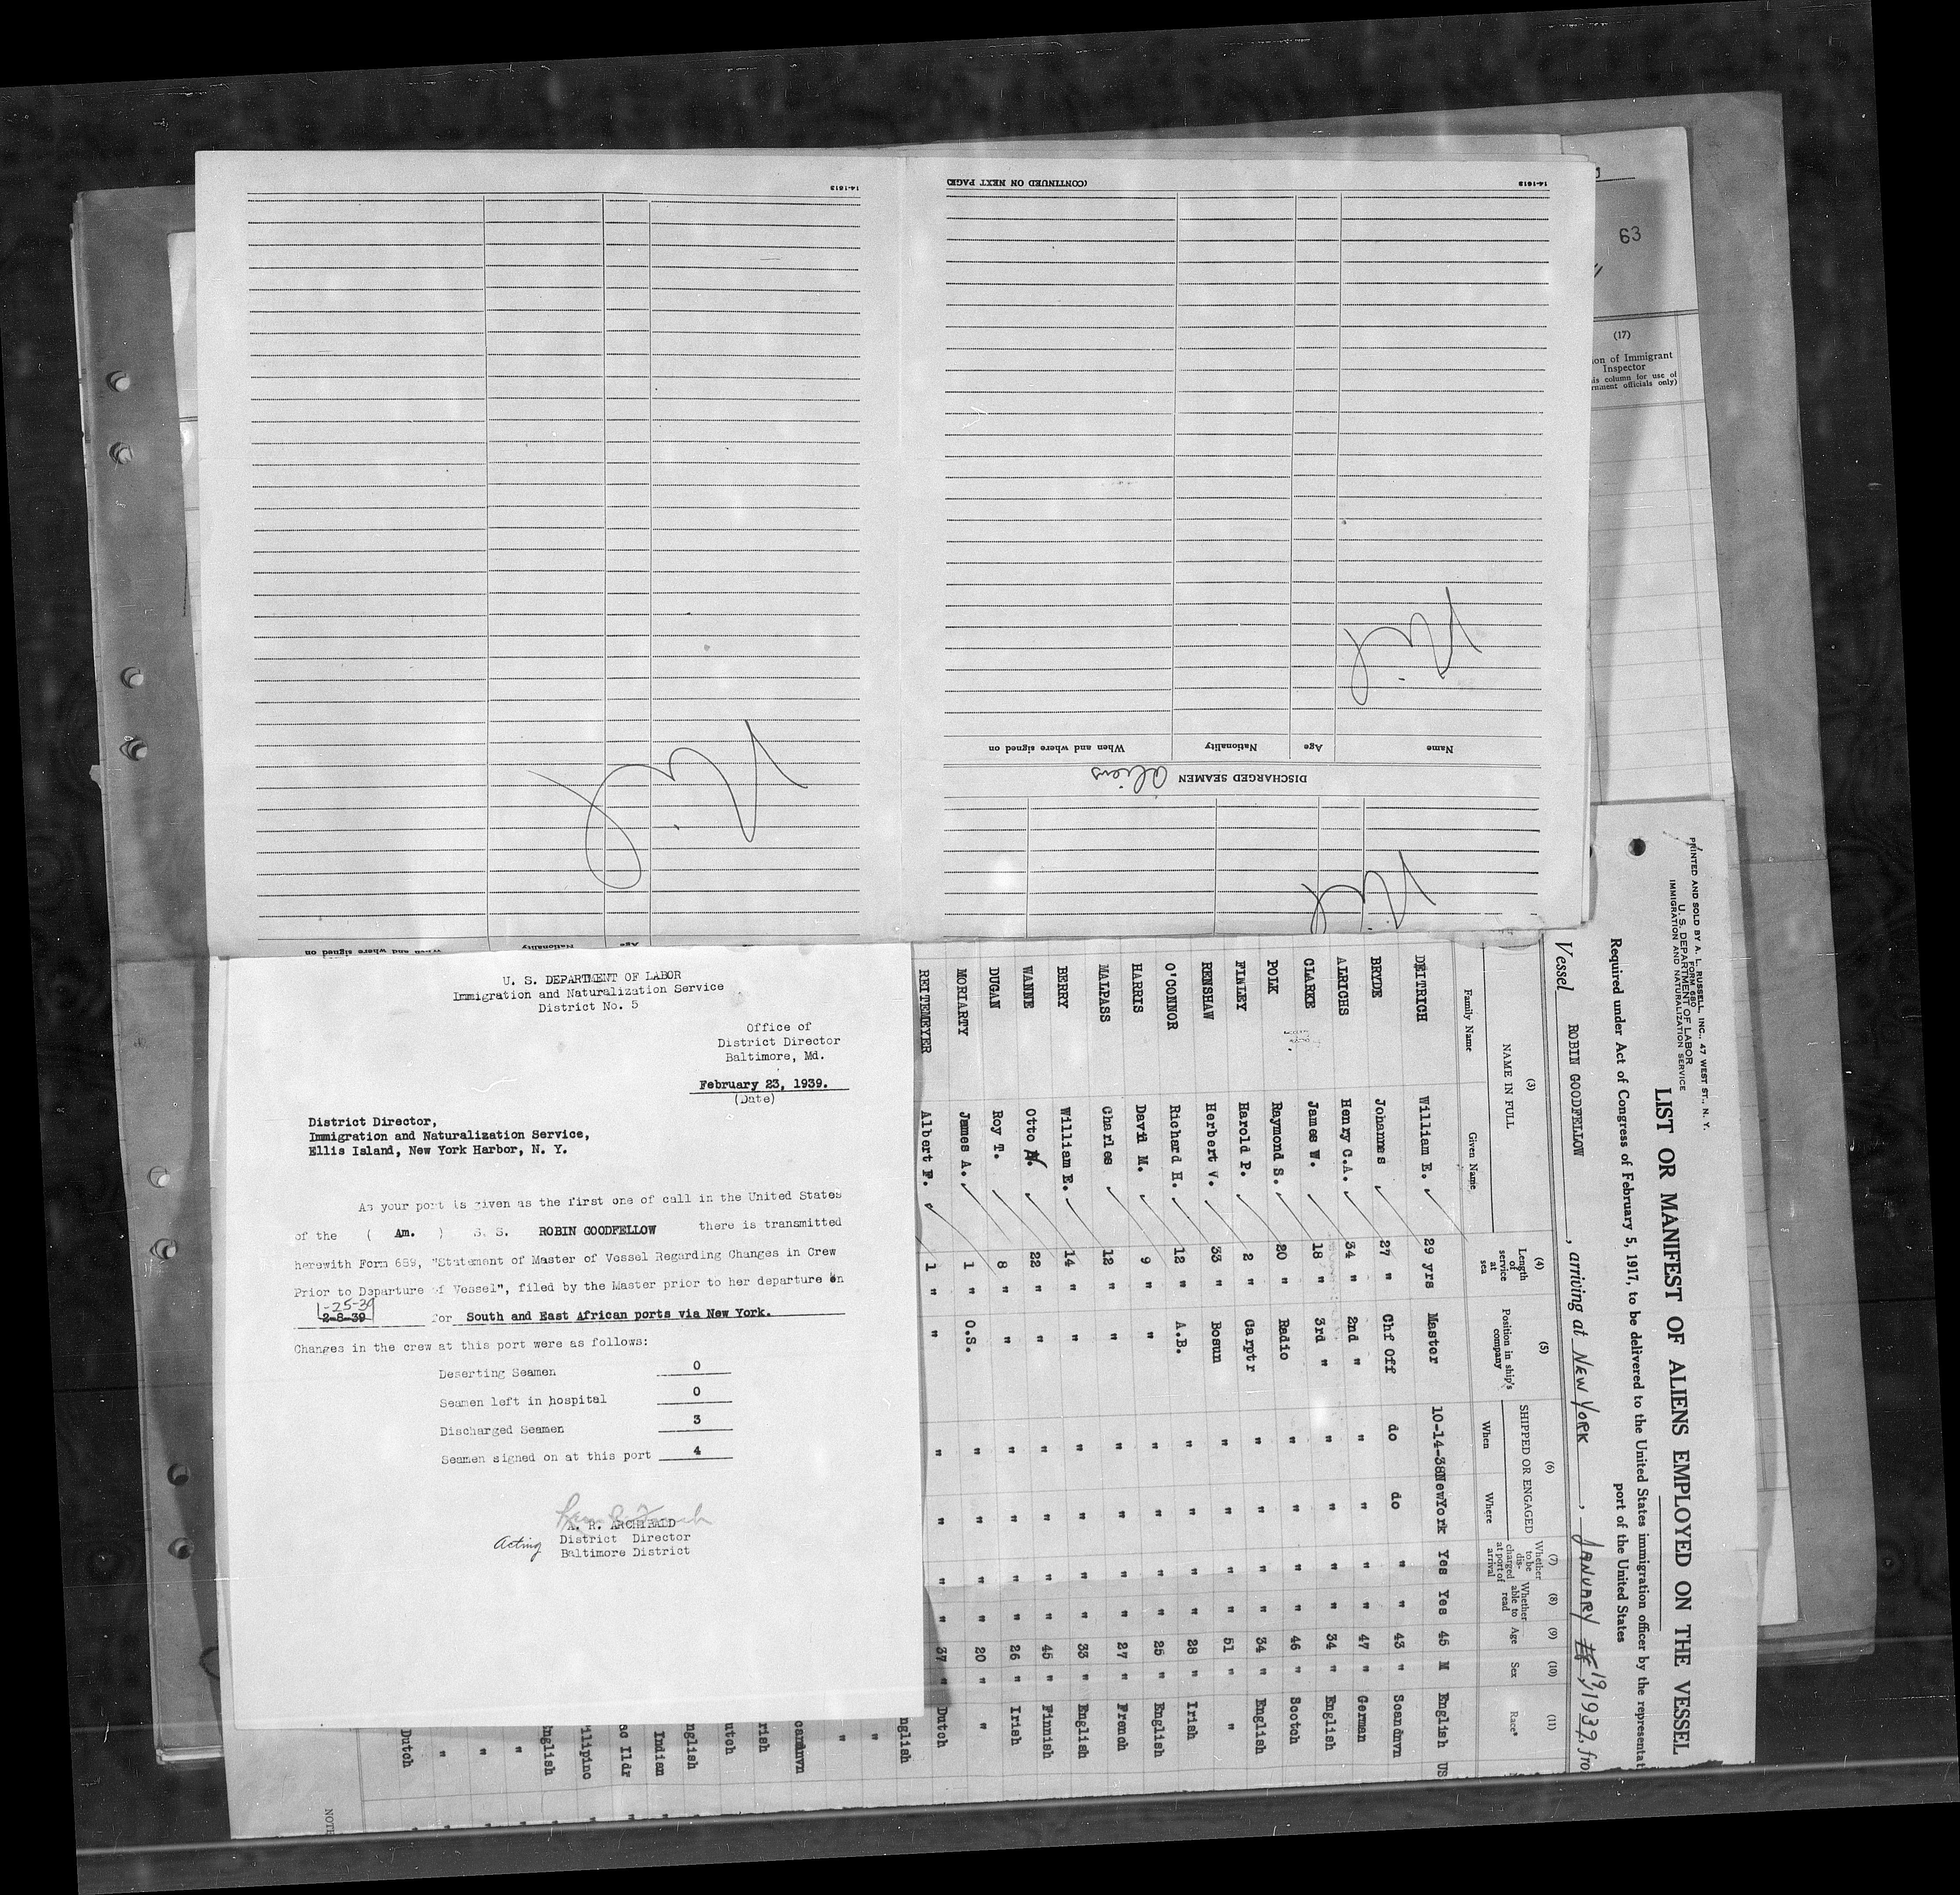 14-1613
(CONTINUED ON NEXT PAGE)
14-1613
Nil
Nil
Name
Age
Nationality
When and where signed on
DISCHARGED SEAMEN Aliens
Nil
Age
Nationality
When and where signed on
63
(17)
ion of Immigrant
Inspector
is column for use of
rnment officials only)
U. S. DEPARTMENT OF LABOR
Immigration and Naturalization Service
District No. 5
Office of
District Director
Baltimore, Md.
February 23, 1939.
(Date)
District Director,
Immigration and Naturalization Service,
Ellis Island, New York Harbor, N. Y.
As your port is given as the first one of call in the United States
of the ( Am. ) S. S. ROBIN GOODFELLOW there is transmitted
herewith Form 689, "Statement of Master of Vessel Regarding Changes in Crew
Prior to Departure of Vessel", filed by the Master prior to her departure on
1-25-39
2-8-39 for South and East African ports via New York.
Changes in the crew at this port were as follows:
Deserting Seamen 0
Seamen left in hospital 0
Discharged Seamen 3
Seamen signed on at this port 4
A. R. ARCHIBALD
Acting District Director
Baltimore District
PRINTED AND SOLD BY A. L. RUSSELL, INC., 47 WEST ST., N. Y.
FORM 680
U. S. DEPARTMENT OF LABOR
IMMIGRATION AND NATURALIZATION SERVICE
LIST OR MANIFEST OF ALIENS EMPLOYED ON THE VESSEL
Required under Act of Congress of February 5, 1917, to be delivered to the United States immigration officer by the representat
port of the United States
Vessel ROBIN GOODFELLOW , arriving at NEW YORK , JANUARY 19, 1939, fro
(3) (4) (5) (6) (7) (8) (9) (10) (11)
NAME IN FULL
Family Name Given Name
Length of service at sea
Position in ship's company
SHIPPED OR ENGAGED
When Where
Whether to be discharged at port of arrival
Whether able to read
Age
Sex
Race*
DEITRICH William E. 29 yrs Master 10-14-38 NewYork Yes Yes 45 M English US
BRYDE Johannes 27 " Chf Off do do " " 43 " Scandnvn
ALRICHS Henry C.A. 34 " 2nd " " " " " 47 " German
CLARKE James W. 18 " 3rd " " " " " 34 " English
POLK Raymond S. 20 " Radio " " " " 46 " Scotch
FINLEY Harold P. 2 " Carptr " " " " 34 " English
RENSHAW Herbert V. 33 " Bosun " " " " 51 " "
O'CONNOR Richard H. 12 " A.B. " " " " 28 " Irish
HARRIS David M. 9 " " " " " " 25 " English
MALPASS Charles 12 " " " " " " 27 " French
BERRY William E. 14 " " " " " " 33 " English
WANNE Otto 22 " " " " " " 45 " Finnish
DUGAN Roy T. 8 " " " " " " 26 " Irish
MORIARTY James A. 1 " O.S. " " " " 20 " "
REITEMEYER Albert F. 1 " " " " " " 37 " Dutch
nglish
"
"
candnvn
rish
utch
nglish
Indian
ac Ildr
ilipino
English
"
"
"
Dutch
NOTE